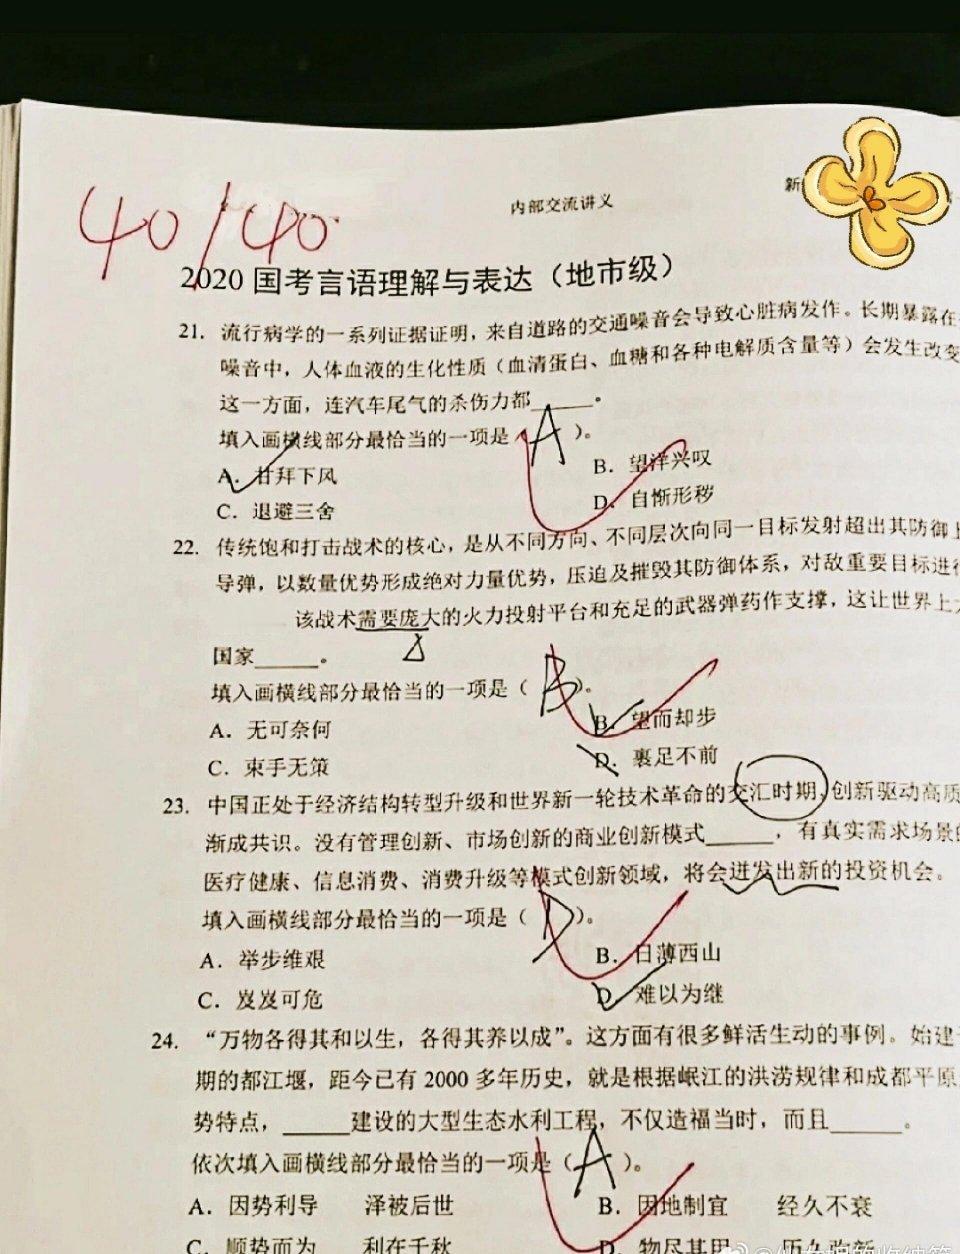 内部交流讲义
新
40/40
2020国考言语理解与表达（地市级）
21. 流行病学的一系列证据证明，来自道路的交通噪音会导致心脏病发作。长期暴露在
噪音中，人体血液的生化性质（血清蛋白、血糖和各种电解质含量等）会发生改变
这一方面，连汽车尾气的杀伤力都______。
填入画横线部分最恰当的一项是（A）。
A. 甘拜下风 B. 望洋兴叹
C. 退避三舍 D. 自惭形秽
22. 传统饱和打击战术的核心，是从不同方向、不同层次向同一目标发射超出其防御
导弹，以数量优势形成绝对力量优势，压迫及摧毁其防御体系，对敌重要目标进行
该战术需要庞大的火力投射平台和充足的武器弹药作支撑，这让世界上
国家______。
填入画横线部分最恰当的一项是（B）。
A. 无可奈何 B. 望而却步
C. 束手无策 D. 裹足不前
23. 中国正处于经济结构转型升级和世界新一轮技术革命的交汇时期，创新驱动高质
渐成共识。没有管理创新、市场创新的商业创新模式______，有真实需求场景的
医疗健康、信息消费、消费升级等模式创新领域，将会迸发出新的投资机会。
填入画横线部分最恰当的一项是（D）。
A. 举步维艰 B. 日薄西山
C. 岌岌可危 D. 难以为继
24. “万物各得其和以生，各得其养以成”。这方面有很多鲜活生动的事例。始建
期的都江堰，距今已有2000多年历史，就是根据岷江的洪涝规律和成都平原
势特点，______建设的大型生态水利工程，不仅造福当时，而且______。
依次填入画横线部分最恰当的一项是（A）。
A. 因势利导 泽被后世 B. 因地制宜 经久不衰
C. 顺势而为 利在千秋 D. 物尽其用 历久弥新